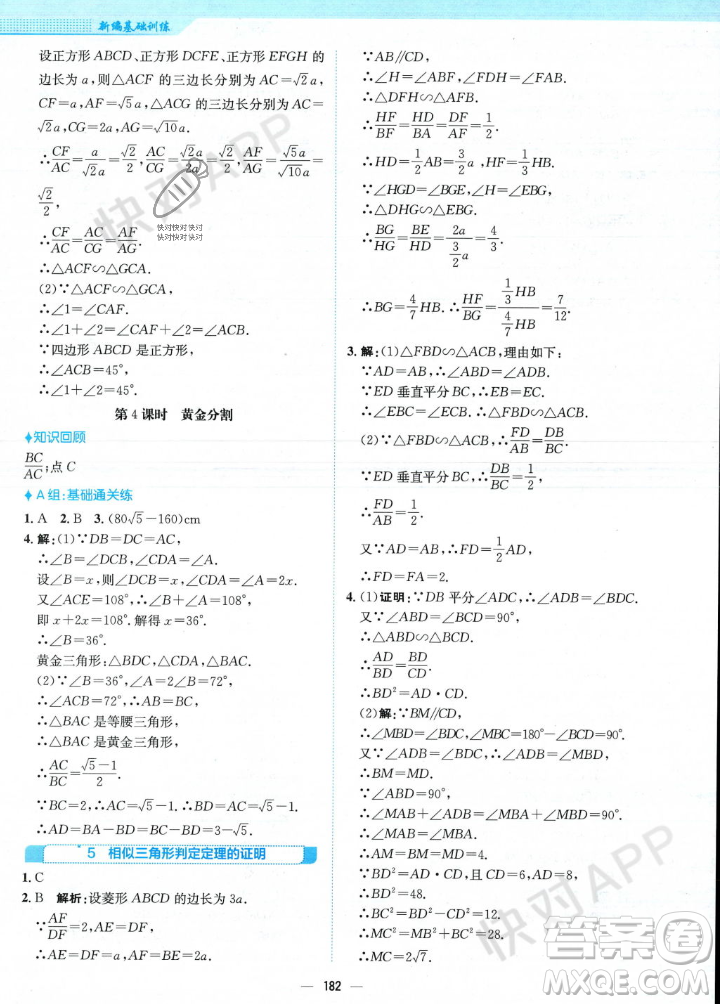 新编基础训练
设正方形 ABCD、正方形 DCFE、正方形 EFGH 的
边长为 a，则△ACF 的三边长分别为 AC=√2 a，
CF=a，AF=√5 a，△ACG 的三边长分别为 AC=
√2 a，CG=2a，AG=√10 a.
∴CF/AC=a/(√2 a)=√2/2，AC/CG=√2a/2a=√2/2，AF/AG=√5 a/(√10 a)=
√2/2，
∴CF/AC=AC/CG=AF/AG.
∴△ACF∽△GCA.
(2)∵△ACF∽△GCA，
∴∠1=∠CAF.
∴∠1+∠2=∠CAF+∠2=∠ACB.
∵四边形 ABCD 是正方形，
∴∠ACB=45°.
∴∠1+∠2=45°.
第 4 课时 黄金分割
知识回顾
BC/AC；点 C
A 组：基础通关练
1. A 2. B 3. (80√5-160)cm
4. 解：(1)∵DB=DC=AC，
∴∠B=∠DCB，∠CDA=∠A.
设∠B=x，则∠DCB=x，∠CDA=∠A=2x.
又∵∠ACE=108°，∴∠B+∠A=108°.
即 x+2x=108. 解得 x=36°.
∴∠B=36°.
黄金三角形：△BCD，△DAC，△BAC.
(2)∵∠B=36°，∠A=2∠B=72°，
∴∠ACB=72°，∴∠A=∠ACB，
∴△BAC 是等腰三角形，
∴△BAC 是黄金三角形.
∴AC/BC=(√5-1)/2.
∵BC=2，∴AC=√5-1.
∵BA=BC=2，BD=AC=√5-1，
∴AD=BA-BD=2-(√5-1)=3-√5.
5 相似三角形判定定理的证明
1. C
2. B 解析：设菱形 ABCD 的边长为 3a.
∵AF/DF=2，AE=DF，∴DF=a，AE=DF=a.
∵AB//CD，
∴∠H=∠FBA，∠FDH=∠FAB.
∴△DFH∽△AFB.
∴HF/BF=HD/BA=DF/AF=1/2.
∴HD=1/2AB=3/2a，HF=1/3HB.
∵∠HGD=∠BGE，∠H=∠EBG，
∴△DHG∽△EBG.
∴BG/HG=BE/HD=2a/(3/2 a)=4/3.
∴BG=4/7HB.∴HF/BG=(1/3 HB)/(4/7 HB)=7/12.
3. 解：(1)△FBD∽△ACB，理由如下：
∵AD=AB，∴∠ADB=∠ABD.
∵ED 垂直平分 BC，∴BE=CE.
∴∠EBC=∠ECB.∴△FBD∽△ACB.
(2)∵△FBD∽△ACB，∴FD/AB=DB/BC.
∵ED 垂直平分 BC，∴DB/BC=1/2.
∴FD/AB=1/2.
又∵AD=AB，∴FD=1/2AD，
∴FD=FA=2.
4. (1)证明：∵DB 平分∠ADC，∴∠ADB=∠CDB.
又∵∠ABD=∠BCD=90°，
∴△ABD∽△BCD.
∴AD/BD=BD/CD.
∴BD²=AD·CD.
(2)解：∵BM//CD，∴∠MBD=∠BDC.
∴∠ADB=∠MBD，∠MBC=180°-∠BCD=90°.
∴BM=MD.
∴∠MAB+∠ADB=∠MBA+∠MBD=90°.
∴∠MAB=∠MBA.
∴AM=MD=BM=4.
∵BD²=AD·CD，且 CD=6，AD=8，
∴BD²=48.
∴BC²=BD²-CD²=12.
∴MC²=MB²+BC²=28.
∴MC=2√7.
182
快对APP
快对快对快对
快对快对快对
快对APP
答案圈
MXQE.COM